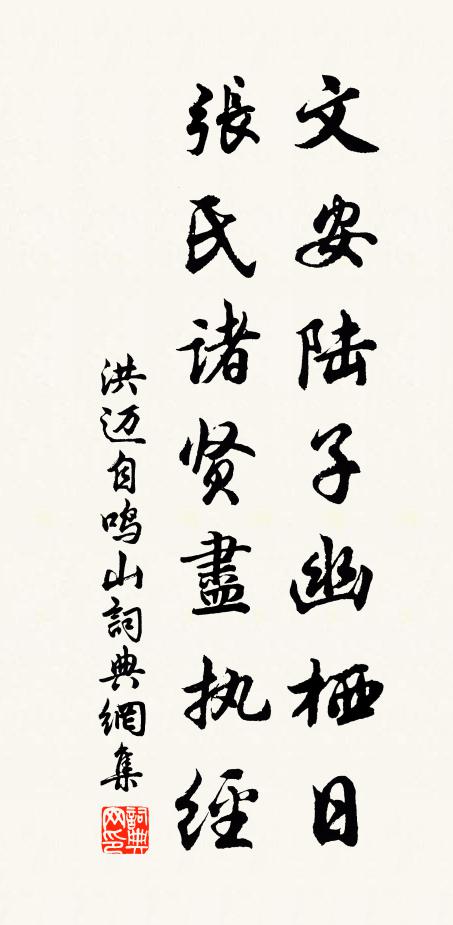 文安陆子幽栖日
張氏诸贤盡执經
洪迈自鸣山詞典網集
詞典网印